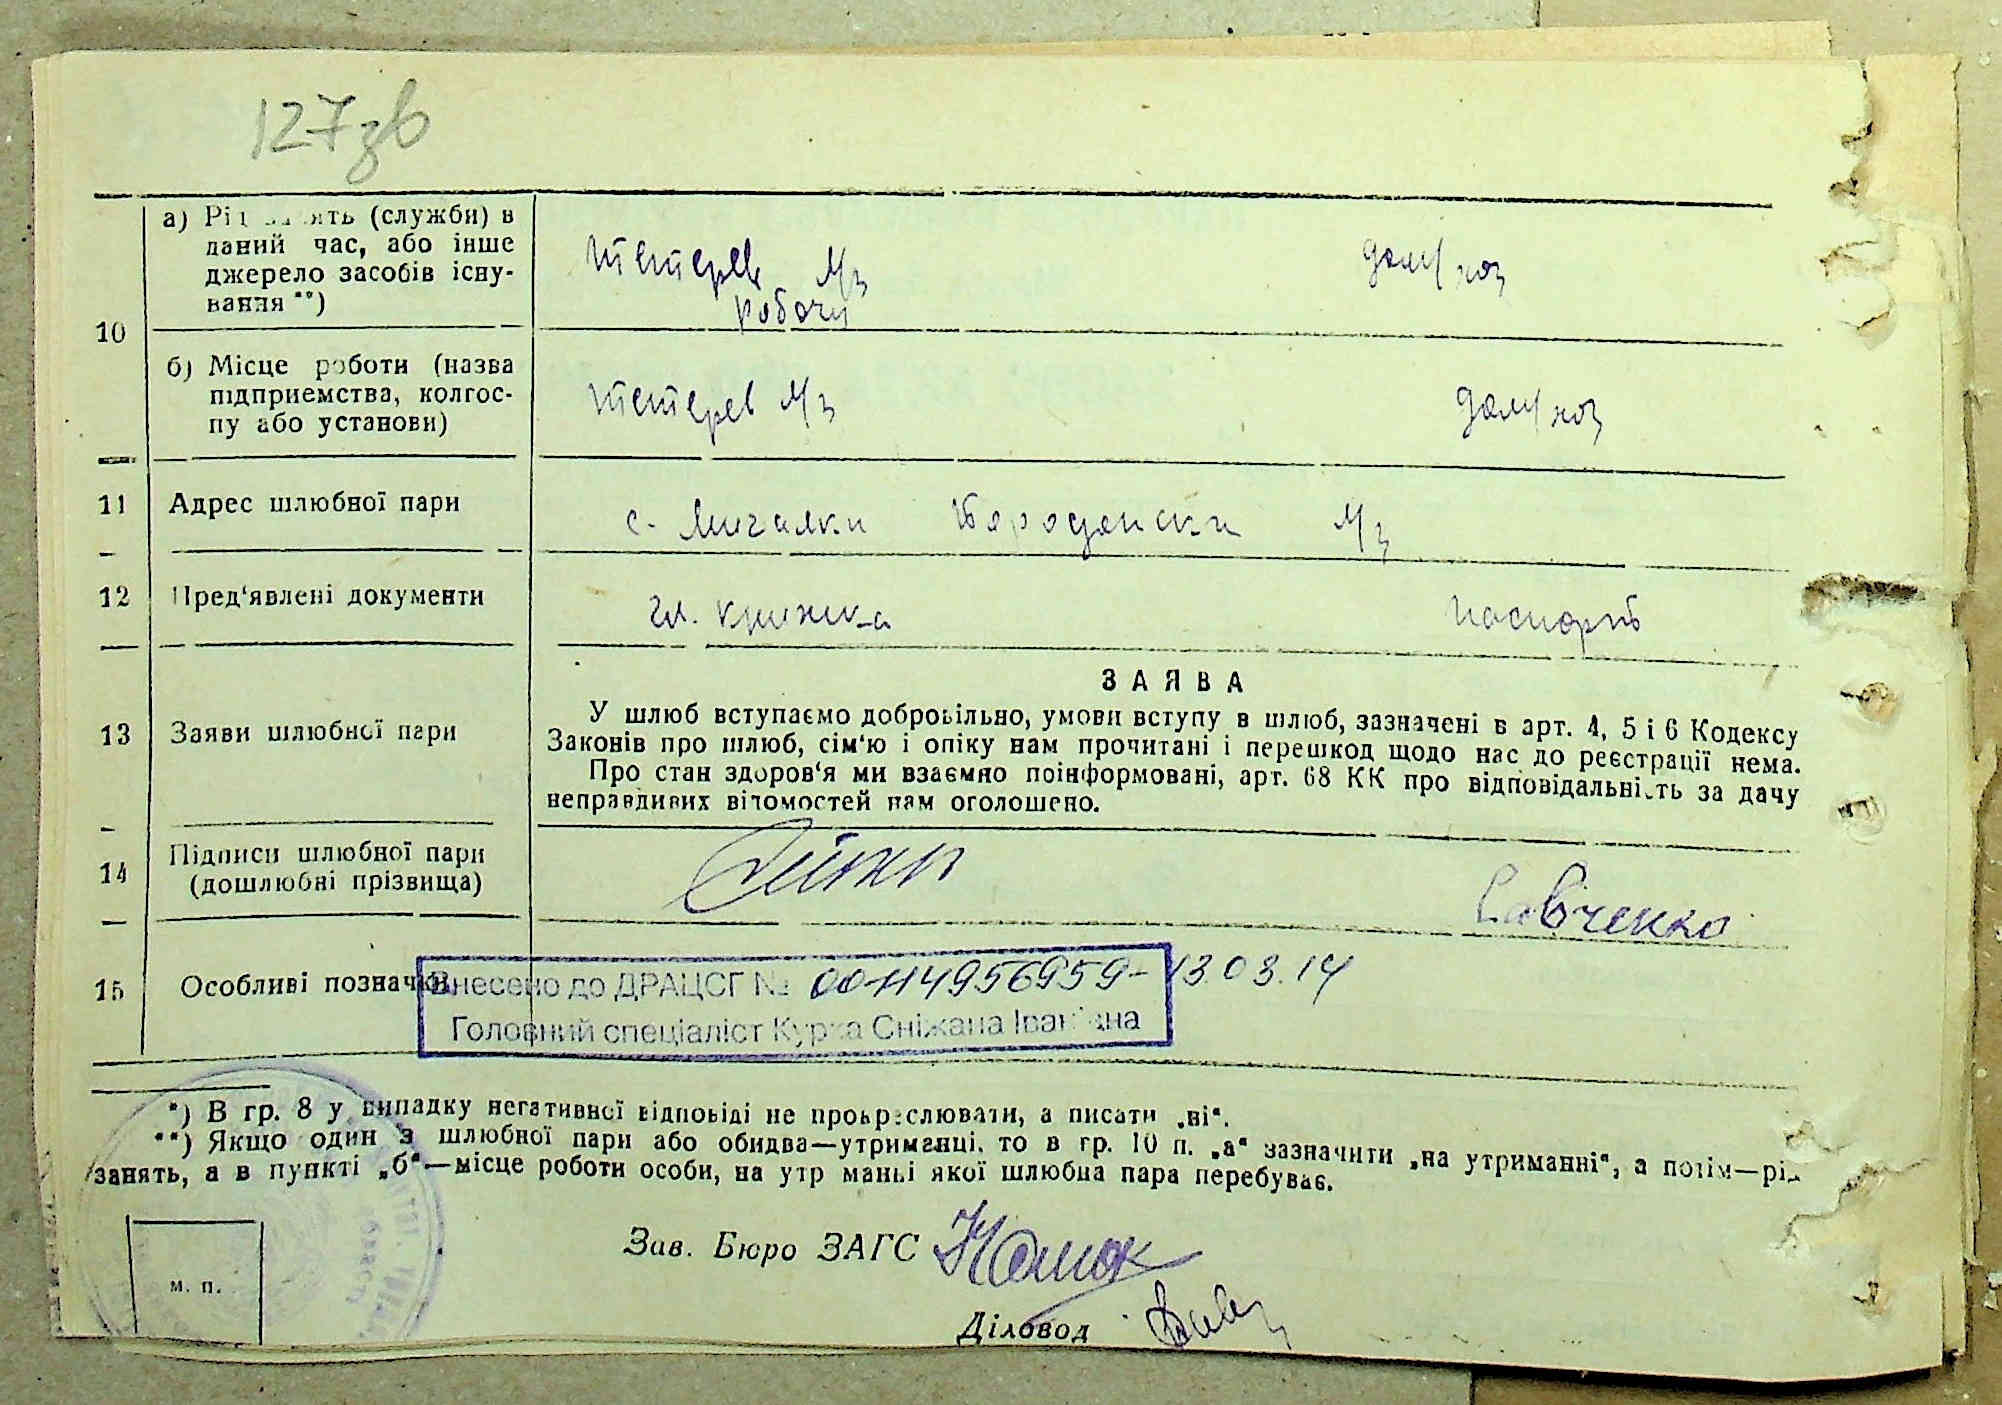 127зв
10
а) Рід занять (служби) в
даний час, або інше
джерело засобів існу-
вання **)
Тетерев М/з
робочи
дом/хоз
б) Місце роботи (назва
підприємства, колгос-
пу або установи)
Тетерев М/з
дом/хоз
11
Адрес шлюбної пари
с. Мигалки Бородянски
12
Пред'явлені документи
книжка
паспорт
13
Заяви шлюбної пари
ЗАЯВА
У шлюб вступаємо добровільно, умови вступу в шлюб, зазначені в арт. 4, 5 і 6 Кодексу
Законів про шлюб, сім'ю і опіку нам прочитані і перешкод щодо нас до реєстрації нема.
Про стан здоров'я ми взаємно поінформовані, арт. 68 КК про відповідальність за дачу
неправдивих відомостей нам оголошено.
14
Підписи шлюбної пари
(дошлюбні прізвища)
Савченко
15
Особливі позначки
Внесено до ДРАЦСГ № 00114956959- 13.03.14
Головний спеціаліст Курка Сніжана Іванівна
*) В гр. 8 у випадку негативної відповіді не прокреслювати, а писати „ні“.
**) Якщо один з шлюбної пари або обидва—утриманці, то в гр. 10 п. „а“ зазначити „на утриманні“, а потім—рід
занять, а в пункті „б“—місце роботи особи, на утр маньі якої шлюбна пара перебуває.
м. п.
Зав. Бюро ЗАГС
Діловод